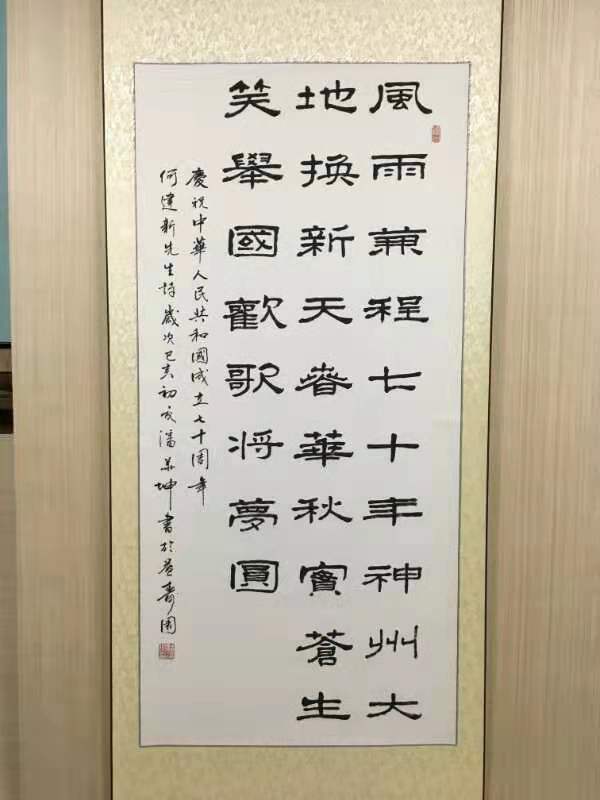 風雨兼程七十年神州大
地換新天春華秋實蒼生
笑舉國歡歌将夢圓
慶祝中華人民共和國成立七十周年
何建新先生詩歲次己亥初夏潘 坤書於 壽園